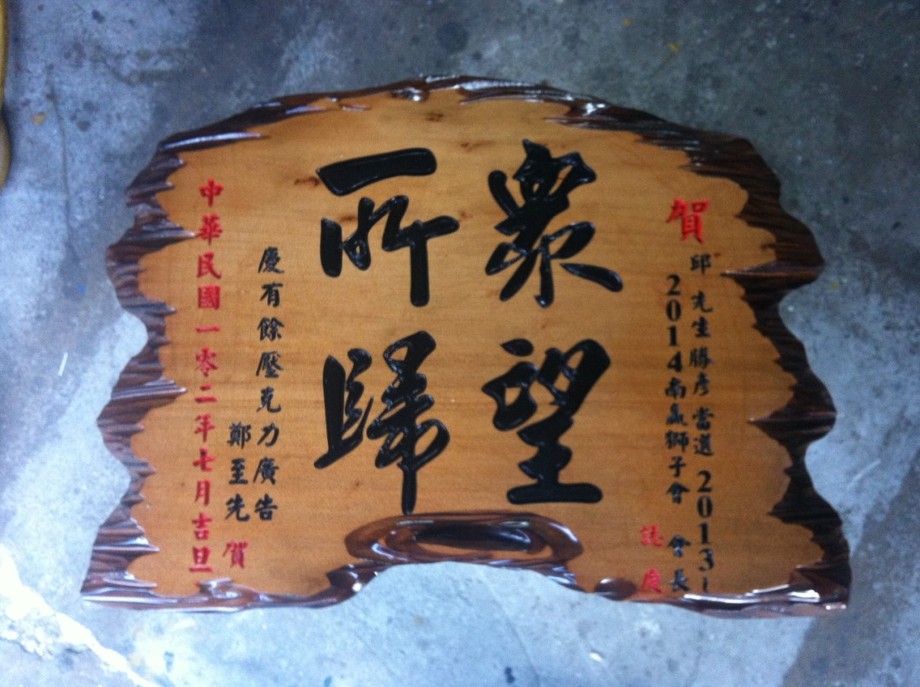 賀
邱 先生勝彥當選 2013~
2014南瀛獅子會 會長
誌慶
眾望
所歸
慶有餘壓克力廣告
鄭至先 賀
中華民國一零二年七月吉旦